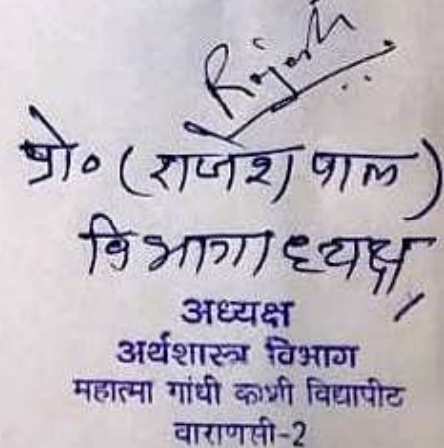 Rajesh
प्रो० (राजेश पाल)
विभागाध्यक्ष
अध्यक्ष
अर्थशास्त्र विभाग
महात्मा गांधी काशी विद्यापीठ
वाराणसी-2